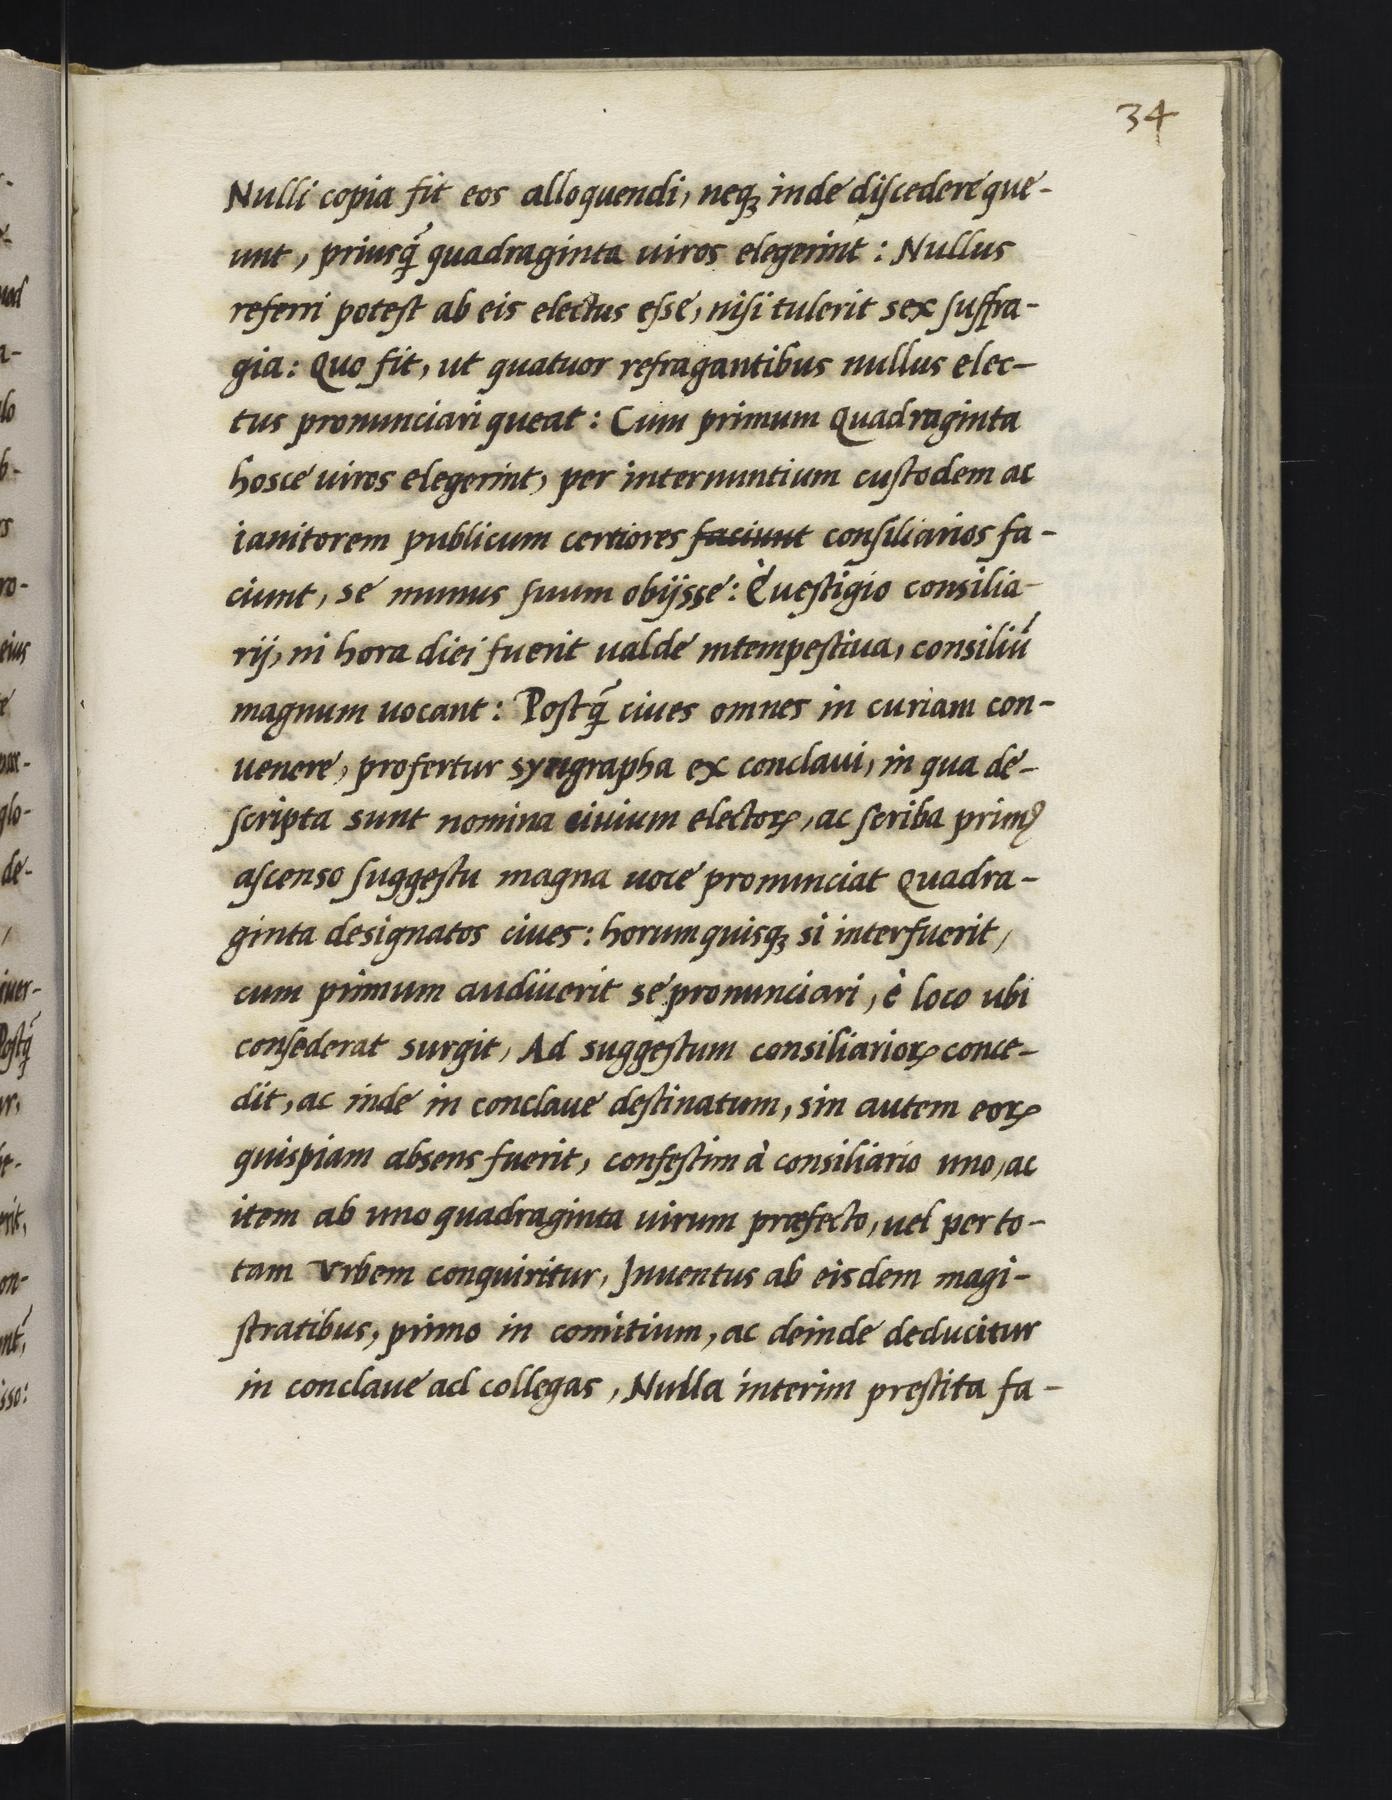 34
Nulli copia fit eos alloquendi, neqꝫ inde diſcedere que-
unt, priusq̃ quadraginta uiros elegerint: Nullus
referri poteſt ab eis electus eſse, niſi tulerit sex ſuffra-
gia: Quo fit, ut quatuor refragantibus nullus elec-
tus pronunciari queat: Cum primum Quadraginta
hosce uiros elegerint, per internuntium cuſtodem ac
ianitorem publicum certiores faciunt conſiliarios fa-
ciunt, se munus ſuum obijsse: È ueſtigio consilia-
rij, ni hora diei fuerit ualde intempeſtiua, consiliũ
magnum uocant: Poſtq̃ ciues omnes in curiam con-
uenere, profertur syngrapha ex conclaui, in qua de-
ſcripta sunt nomina ciuium electoꝝ, ac ſcriba primꝰ
aſcenso ſuggeſtu magna uoce pronunciat Quadra-
ginta designatos ciues: horum quisqꝫ si interfuerit,
cum primum audiuerit se pronunciari, è loco ubi
conſederat surgit, Ad suggeſtum consiliarioꝝ conce-
dit, ac inde in conclaue deſtinatum, sin autem eoꝝ
quispiam absens fuerit, confeſtim à consiliario uno, ac
item ab uno quadraginta uirum præfecto, uel per to-
tam Vrbem conquiritur, Inuentus ab eisdem magi-
ſtratibus, primo in comitium, ac deinde deducitur
in conclaue ad collegas, Nulla interim preſtita fa-